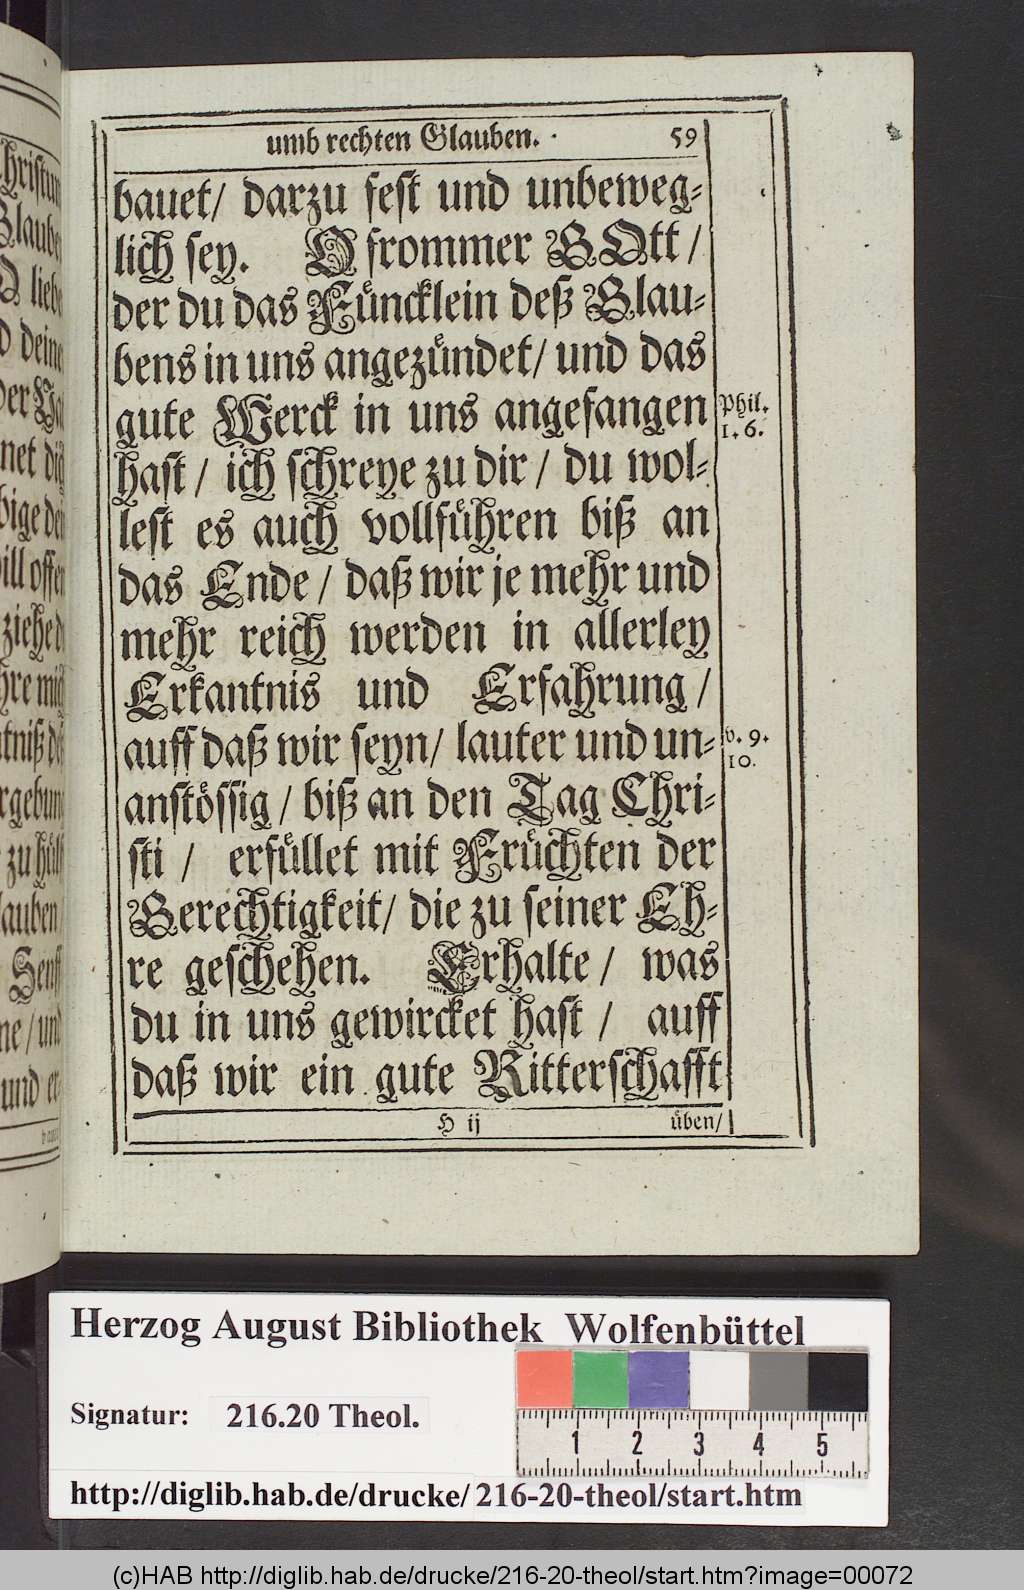 umb rechten Glauben. 59
bauet/ darzu fest und unbeweg-
lich sey. O frommer GOtt/
der du das Füncklein deß Glau-
bens in uns angezündet/ und das
gute Werck in uns angefangen
Phil.
1. 6.
hast/ ich schreye zu dir/ du wol-
lest es auch vollführen biß an
das Ende/ daß wir je mehr und
mehr reich werden in allerley
Erkantnis und Erfahrung/
auff daß wir seyn/ lauter und un-
v. 9.
10.
anstössig/ biß an den Tag Chri-
sti/ erfüllet mit Früchten der
Gerechtigkeit/ die zu seiner Eh-
re geschehen. Erhalte/ was
du in uns gewircket hast/ auff
daß wir ein gute Ritterschafft
H ij üben/
Herzog August Bibliothek Wolfenbüttel
Signatur: 216.20 Theol.
1 2 3 4 5
http://diglib.hab.de/drucke/216-20-theol/start.htm
(c)HAB http://diglib.hab.de/drucke/216-20-theol/start.htm?image=00072